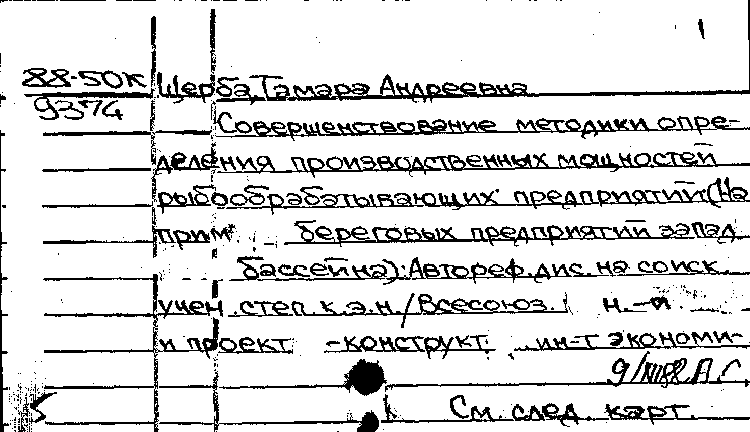 1
88-50К
9374
Щерба, Тамара Андреевна
Совершенствование методики опре-
деления производственных мощностей
рыбообрабатывающих предприятий (На
прим. береговых предприятий запад.
бассейна): Автореф. дис. на соиск.
учен. степ. к.э.н. / Всесоюз. н.-и.
и проект.-конструкт. ин-т экономи-
См. след. карт.